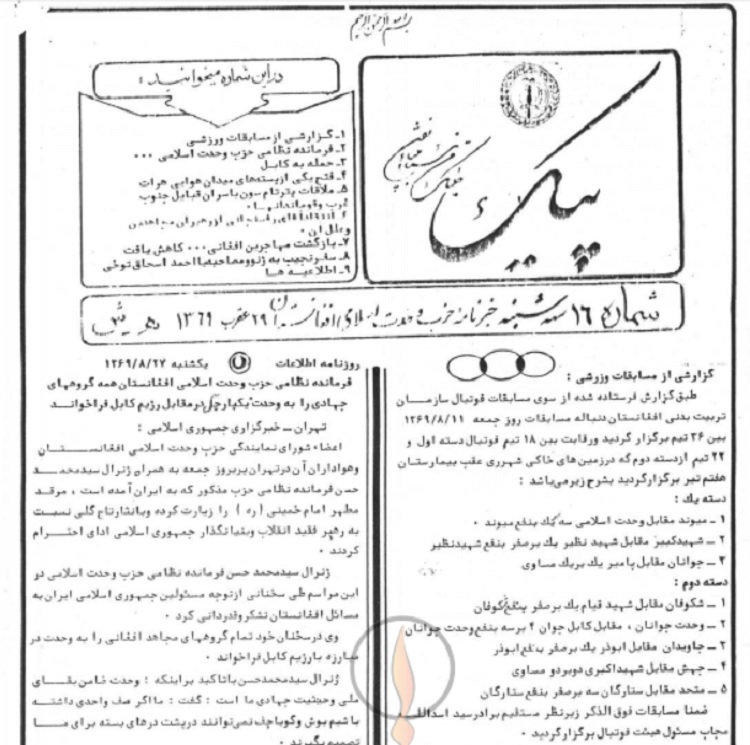 بسم الله الرحمن الرحیم
پیک
در این شماره میخوانید :
۱ـ گزارشی از مسابقات ورزشی
۲ـ فرمانده نظامی حزب وحدت اسلامی ...
۳ـ حمله به کابل
۴ـ فتح یکی از پستههای میدان هوایی هرات
۵ـ ملاقات پترتامسون با سران قبایل جنوب
غرب و قوماندانها
۶ـ رهبران مجاهدین
و علل آن
۷ـ بازگشت مهاجرین افغانی ... کاهش یافت
۸ـ سفر نجیب به ژنو و مصاحبه با احمد اسحاق توخی
۹ـ اطلاعیه ها
شماره ۱۶ سه شنبه خبرنامه حزب وحدت اسلامی افغانستان ۲۹ عقرب ۱۳۶۹
گزارشی از مسابقات ورزشی :
طبق گزارش فرستاده شده از سوی مسابقات فوتبال سازمان
تربیت بدنی افغانستان دنباله مسابقات روز جمعه ۱۳۶۹/۸/۱۱
بین ۳۶ تیم برگزار گردید ورقابت بین ۱۸ تیم فوتبال دسته اول و
۲۲ تیم ازدسته دوم که درزمین های خاکی شهرری عقب بیمارستان
هفتم تیر برگزار گردید بشرح زیر می باشد :
دسته یك :
۱ ــ میوند مقابل وحدت اسلامی سه یك بنفع میوند ۰
۲ ــ شهید کبیر مقابل شهید نظیر یك برصفر بنفع شهید نظیر
۳ ــ جوانان مقابل پامیر یك بریك مساوی
دسته دوم :
۱ ــ شکوفان مقابل شهید قیام یك برصفر بنفع شکوفان
۲ ــ وحدت جوانان ، مقابل کابل جوان ۴ برسه بنفع وحدت جوانان
۳ ــ جاویدان مقابل ابوذر یك برصفر بنفع ابوذر
۴ ــ جهش مقابل شهید اکبری دوبردو مساوی
۵ ــ متحد مقابل ستارگان سه برصفر بنفع ستارگان
ضمنا مسابقات فوق الذکر زیرنظر مستقیم برادر سید اسدالله
مجاب مسئول هیئت فوتبال برگزار گردید ۰
روزنامه اطلاعات یکشنبه ۱۳۶۹/۸/۲۷
فرمانده نظامی حزب وحدت اسلامی افغانستان همه گروههای
جهادی را به وحدت یکپارچگی درمقابل رژیم کابل فراخواند
تهران ــ خبرگزاری جمهوری اسلامی :
اعضاء شورای نمایندگی حزب وحدت اسلامی افغانستان
وهواداران آن درتهران پریروز جمعه به همراه ژنرال سید محمد
حسن فرمانده نظامی حزب مذکور که به ایران آمده است ، مرقد
مطهر امام خمینی (ره) را زیارت کرده وبانثارتاج گلی نسبت
به رهبر فقید انقلاب وبنیانگذار جمهوری اسلامی ادای احترام
کردند ۰
ژنرال سید محمد حسن فرمانده نظامی حزب وحدت اسلامی در
این مراسم طی سخنانی ازتوجه مسئولین جمهوری اسلامی ایران به
مسائل افغانستان تشکر وقدردانی کرد ۰
وی درسخنان خود تمام گروههای مجاهد افغانی را به وحدت در
مبارزه با رژیم کابل فراخواند ۰
ژنرال سید محمد حسن با تاکید براینکه : وحدت ضامن بقای
ملی وحیثیت جهادی ما است : گفت : ما اگر صف واحدی داشته
باشیم بوش وگورباچف نمی توانند درپشت درهای بسته برای ما
تصمیم بگیرند ۰